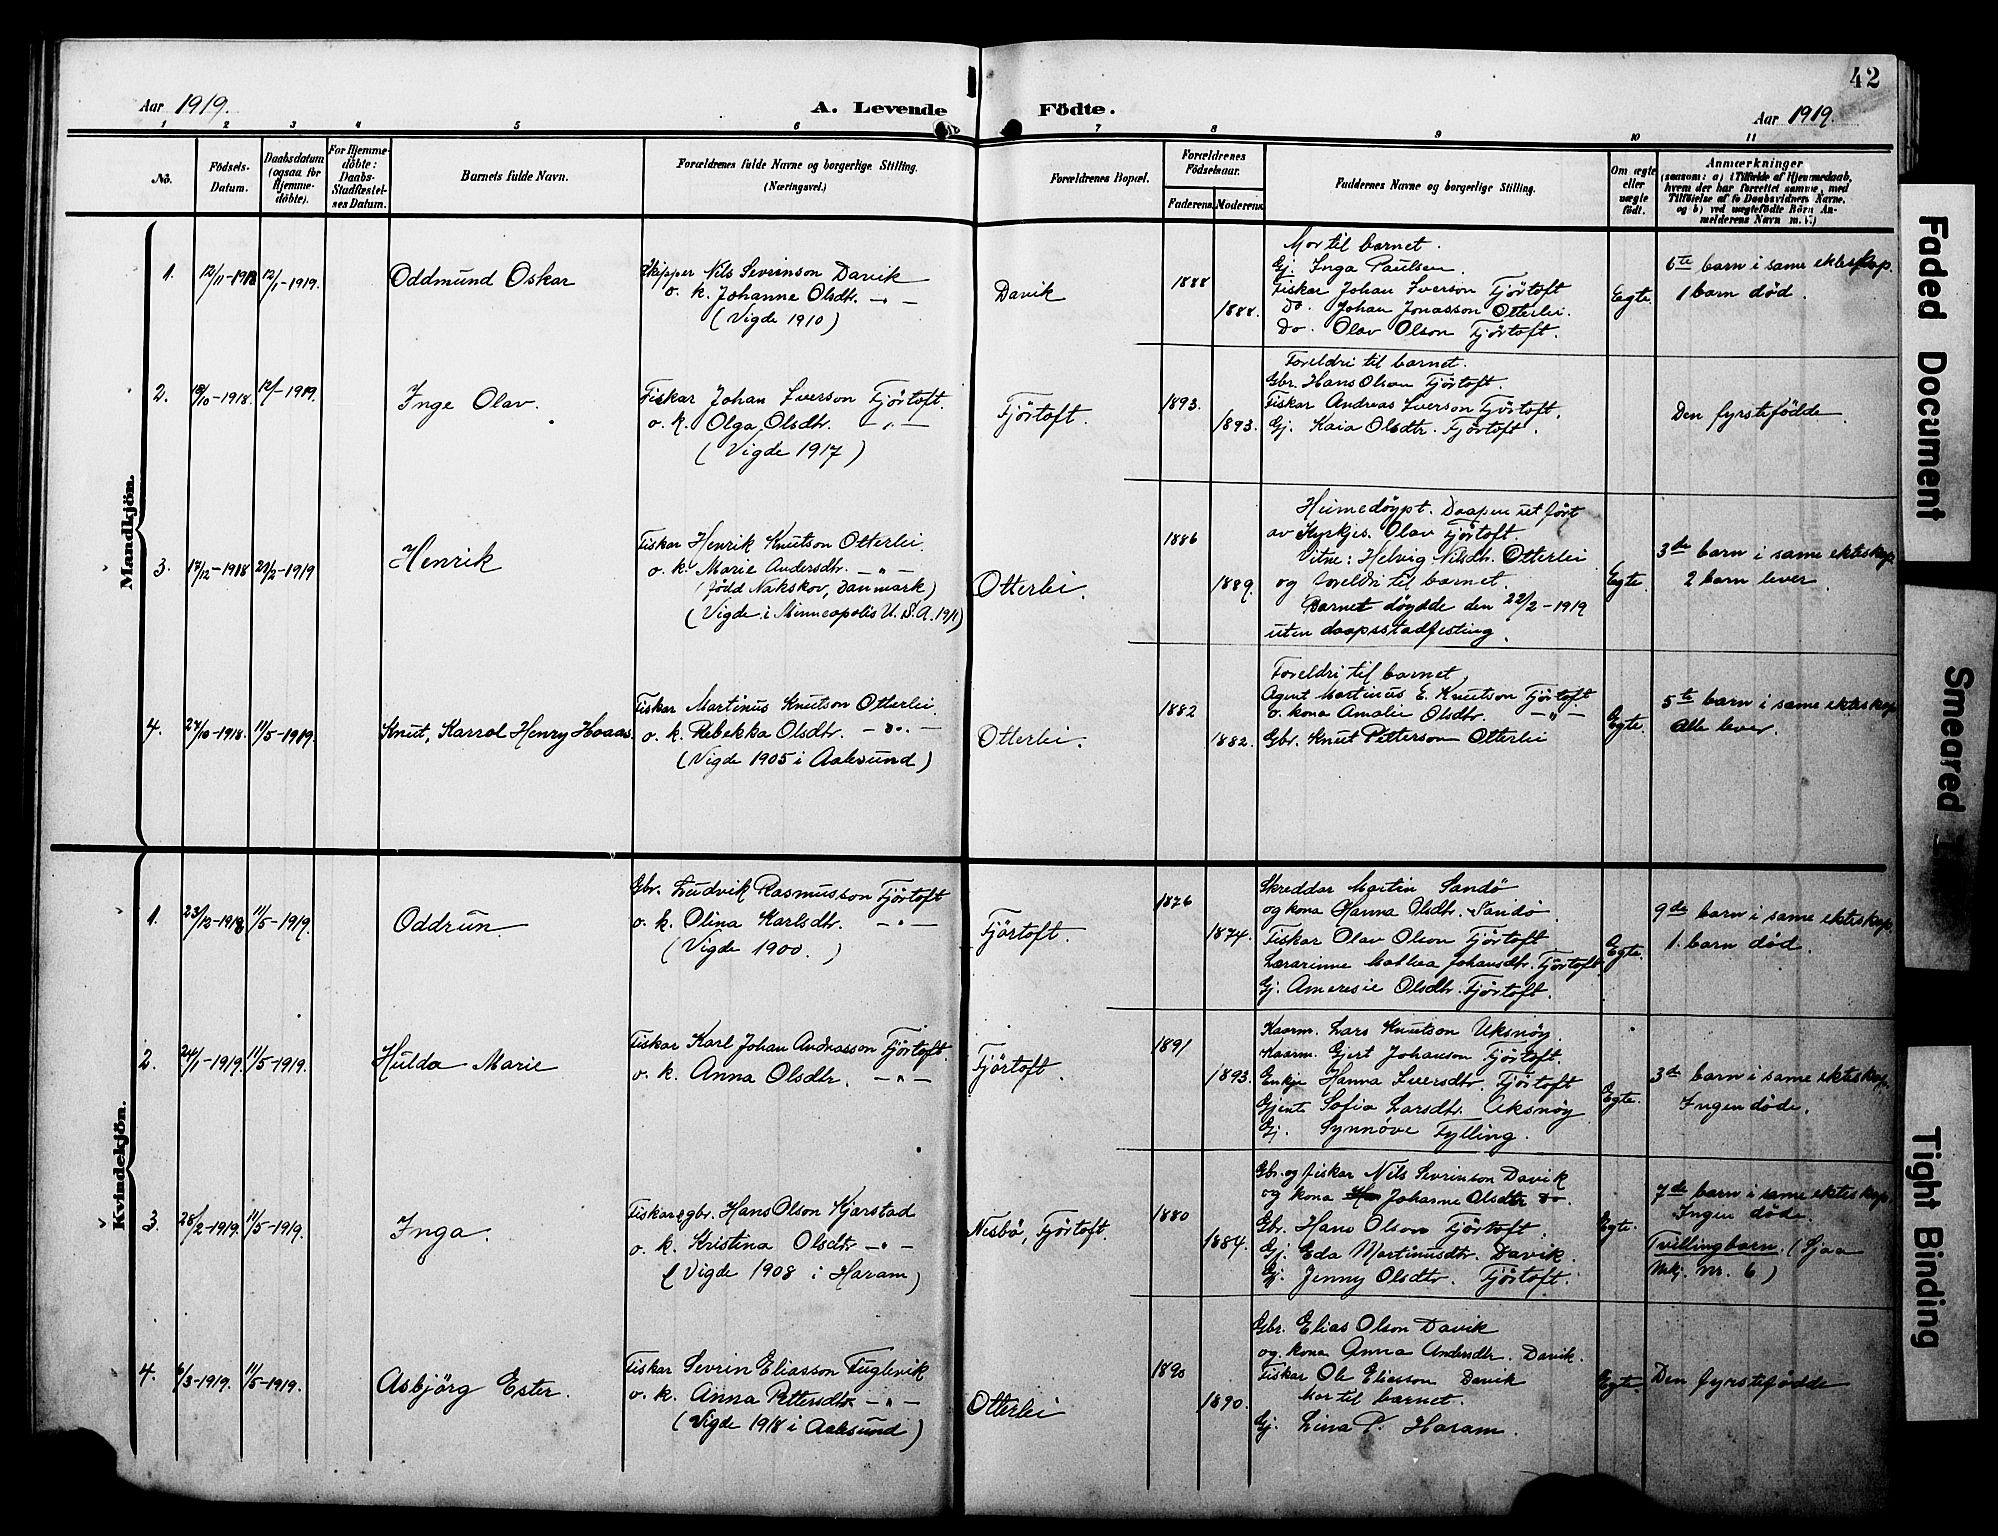 42
Aar 1919.
A. Levende Födte.
Aar 1919.
1 2 3 4 5 6 7 8 9 10 11
No.
Födsels-Datum.
Daabsdatum (ogsaa for Hjemme-döbte).
For Hjemme-döbte: Daabs-Stadfæstel-ses Datum.
Barnets fulde Navn.
Forældrenes fulde Navne og borgerlige Stilling.
(Næringsvei.)
Forældrenes Bopæl.
Forældrenes Födselsaar.
Faderens. Moderens.
Faddernes Navne og borgerlige Stilling.
Om ægte eller uægte födt.
Anmærkninger
(saasom: a) i Tilfælde af Hjemmedaab,
hvem der har forrettet samme, med
Tilföielse af to Daabsvidners Navne,
og b) ved uægtefödte Börn An-
melderens Navn m. V.)
Mandkjön.
1. 12/11-1918 12/1-1919. Oddmund Oskar
Skipper Nils Sevrinson Davik
o. k. Johanne Olsdtr. - " -
(Vigde 1910)
Davik
1888
1888.
Mor til barnet.
Gj. Inga Paulsen.
Fiskar Johan Iverson Fjörtoft
Do. Johan Jonasson Otterlei.
Do. Olav Olson Fjörtoft.
Egte.
6te barn i same ekteskap.
1 barn död.
2. 18/10-1918. 12/1-1919. Inge Olav.
Fiskar Johan Iverson Fjörtoft.
o. k. Olga Olsdtr. - " -
(Vigde 1917)
Fjörtoft.
1893.
1893.
Foreldri til barnet.
Gbr. Hans Olson Fjörtoft.
Fiskar Andreas Iverson Fjörtoft.
Gj. Kaia Olsdtr. Fjörtoft.
Den fyrstefödde.
3. 17/12-1918 21/2-1919 Henrik
Fiskar Henrik Knutson Otterlei.
o. k. Marie Andersdtr. - " -
(född Nakskov, Danmark)
(Vigde i Minneapolis U.S.A. 1911)
Otterlei.
1886
1889.
Heimedöypt. Daapen utfört
av Kyrkjes. Olav Fjörtoft.
Vitne: Helvig Nilsdtr. Otterlei
og foreldri til barnet
Barnet döydde den 22/2-1919
uten daapsstadfesting.
Egte
3de barn i same ekteskap
2 barn lever
4. 27/10-1918. 11/5-1919. Knut, Karrol Henry Hoaas.
Fiskar Martinus Knutson Otterlei.
o. k. Rebekka Olsdtr. - " -
(Vigde 1905 i Aalesund)
Otterlei.
1882
1882.
Foreldri til barnet,
Agent Martinus E. Knutson Fjörtoft
o. kona Amalie Olsdtr. - " -
Gbr. Knut Petterson Otterlei
Egte.
5te barn i same ekteskap
Alle lever.
Kvindekjön.
1. 23/12-1918 11/5-1919. Oddrun.
Gbr. Ludvik Rasmusson Fjörtoft
o. k. Olina Karlsdtr. - " -
(Vigde 1900.)
Fjörtoft.
1876
1874.
Skreddar Martin Sandö
og kona Hanna Olsdtr. Sandö.
Fiskar Olav Olson Fjörtoft
Lærarinne Mathea Johansdtr. Fjörtoft
Gj. Ameresie Olsdtr. Fjörtoft.
Egte.
9de barn i same ekteskap.
1. barn död.
2. 24/1-1919. 11/5-1919. Hulda Marie
Fiskar Karl Johan Andreasson Fjörtoft
o. k. Anna Olsdtr. - " -
Fjörtoft.
1891
1893.
Kaarm. Lars Knutson Uksnöy.
Kaarm. Gjert Johanson Fjörtoft.
Enkje Hanna Iversdtr. Fjörtoft
Gjente Sofia Larsdtr. Uksnöy
Gj. Synnöve Fylling.
Egte.
3de barn i same ekteskap.
Ingen döde.
3. 28/2-1919. 11/5-1919. Inga.
Fiskar o gbr. Hans Olson Kjerstad
o. k. Kristina Olsdtr - " -
(Vigde 1908 i Haram)
Nesbö, Fjörtoft.
1880
1884.
Gbr. og fiskar Nils Sevrinson Davik
og kona Johanne Olsdtr do.
Gbr. Hans Olson Fjörtoft.
Gj. Eda Martinusdtr. Davik.
Gj. Jenny Olsdtr. Fjörtoft.
Egte.
7de barn i same ekteskap.
Ingen döde.
Tvillingbarn. (Sjaa
Mkj. nr. 6)
4. 6/3-1919. 11/5-1919. Asbjörg Ester.
Fiskar Sevrin Eliasson Fuglevik
o. k. Anna Pettersdtr. - " -
(Vigde 1918 i Aalesund)
Otterlei
1890
1890.
Gbr. Elias Olson Davik
og. kona Anna Andersdtr. Davik.
Fiskar Ole Eliasson Davik
Mor til barnet.
Gj. Lina P. Haram.
Egte.
Den fyrstefödde
Faded Document
Smeared
Tight Binding